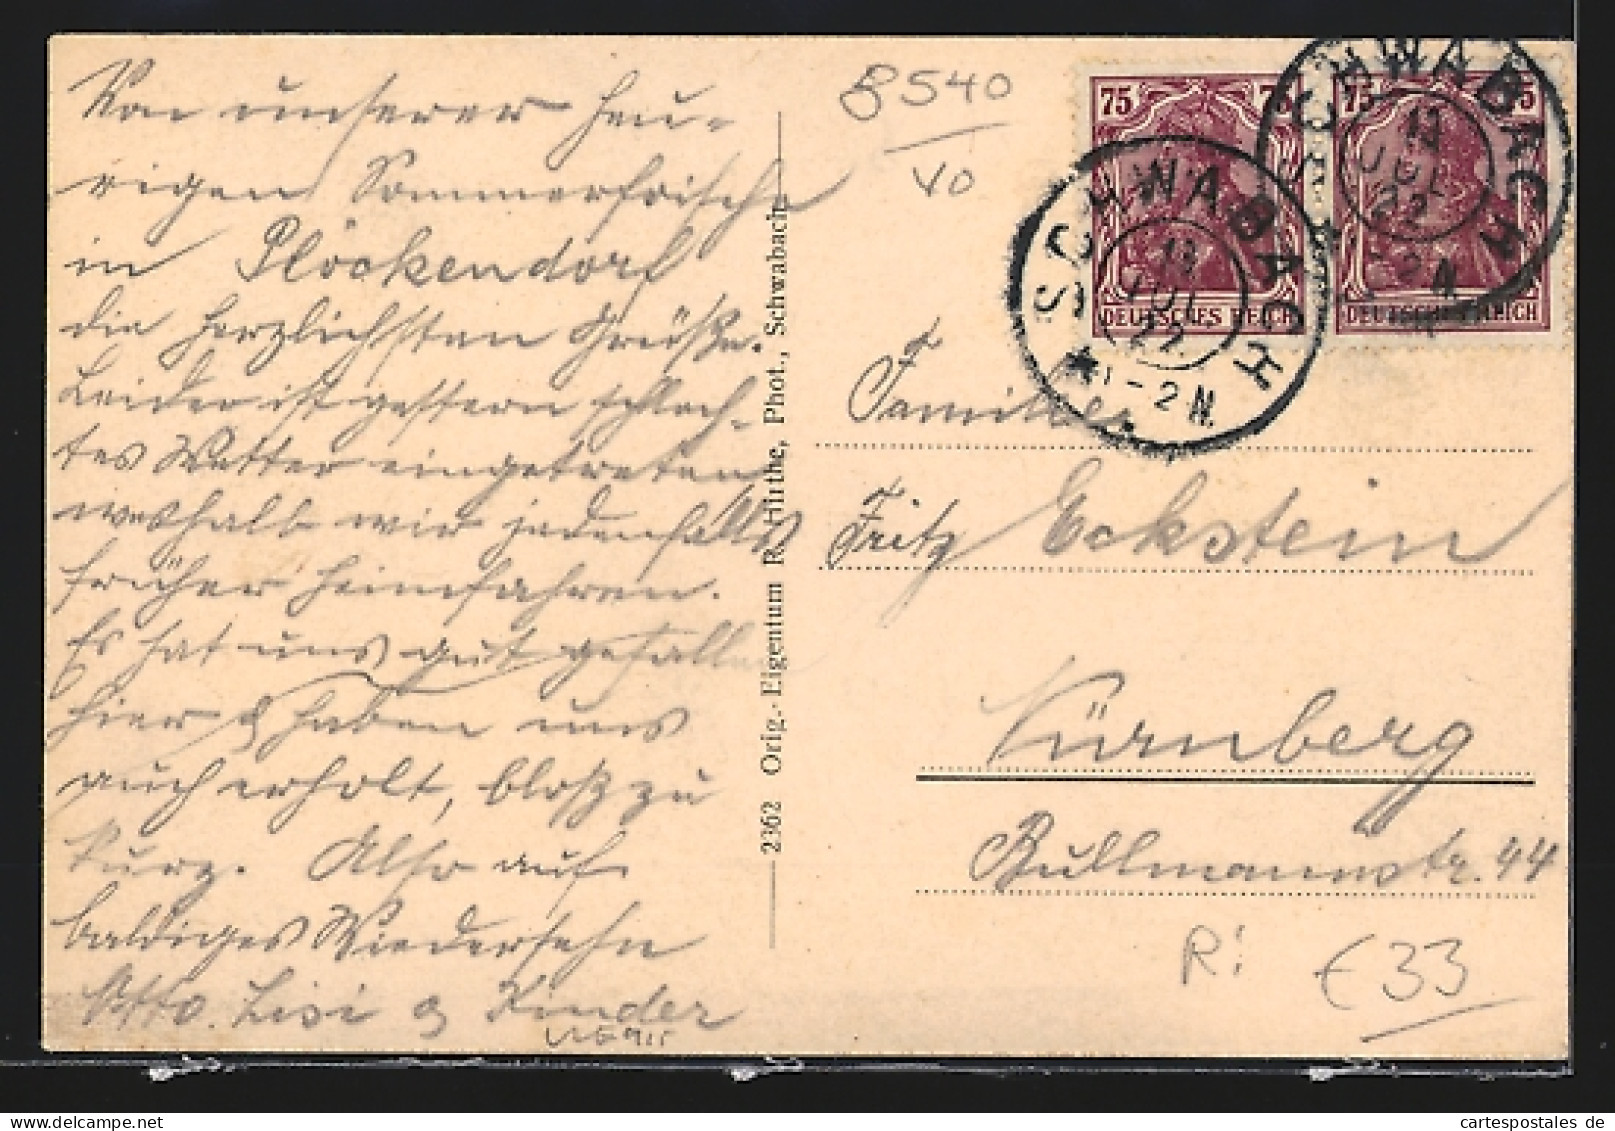 Von unserer heu-
rigen Sommerfrische
in Plöckendorf
die herzlichsten Grüße.
Leider ist gestern schlech-
tes Wetter eingetreten
weshalb wir jedenfalls
früher heimfahren.
Es hat uns gut gefallen
hier & haben uns
auch erholt, bloß zu
kurz. Also auf
baldiges Wiedersehn
Otto. Lisi & Kinder
2362 Orig.-Eigentum R. Hirthe, Phot., Schwabach
B540
VO
75 75
DEUTSCHES REICH
75 75
DEUTSCHES REICH
SCHWABACH
13
JUL
22
1-2 N.
SCHWABACH
13
JUL
22
1-2 N.
Familie
Fritz Eckstein
Nürnberg
Bullmannstr. 44
Ri
€33
cartespostales de